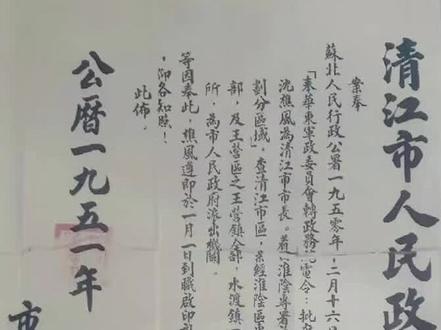 清江市人民政
案奉
蘇北人民行政公署一九五零年,二月十六日
「奉華東軍政委員會轉政務院電令:批
沈樵風為清江市市長。着淮陰專署
劃分區域」,查清江市區,業經淮陰區
部,及王營區之王營鎮全部,水渡鎮
所,為市人民政府派出機關。
等因奉此,樵風遵即於一月一日到職啟印
,仰各知照!
此佈。
公曆一九五一年
市